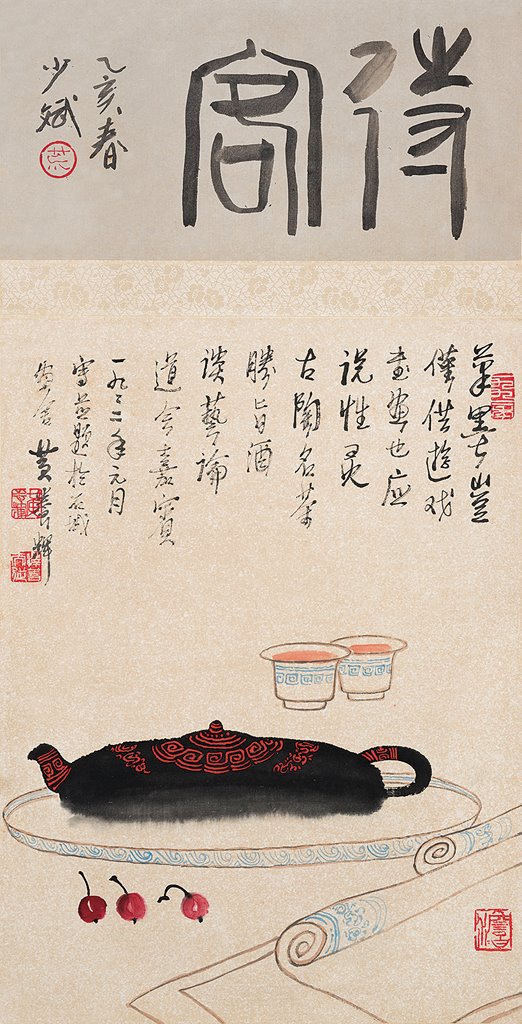 待客
乙亥春
少斌
筆墨豈
僅供遊戲
書畫也應
說性靈
古陶名茶
勝旨酒
談藝論
道會嘉賓
一九年元月
寫並題於石城
畫舍 黃養輝